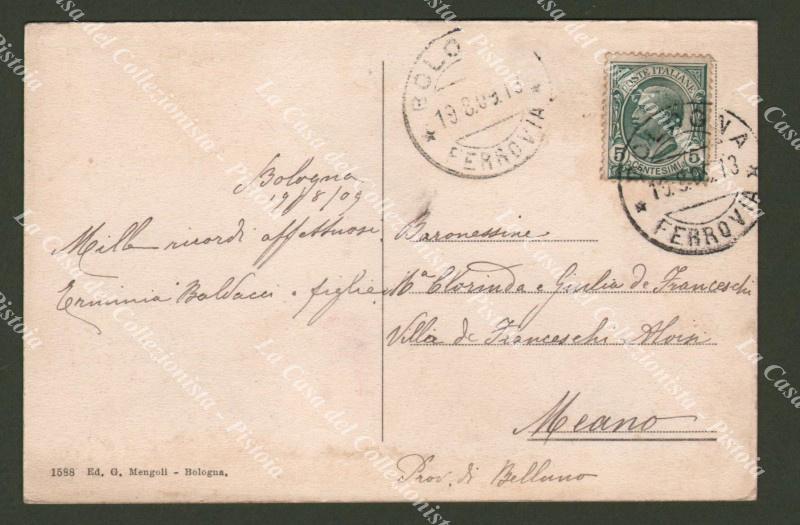 BOLO
19.8.09.13
* FERROVIA *
POSTE ITALIANE
5 CENTESIMI 5
BOLOGNA
19.8.09.13
* FERROVIA *
Bologna
19/8/09
Mille ricordi affettuosi
Erminia Baldacci e figlie
Baronessine
Mª Clorinda e Giulia de Franceschi
Villa de Franceschi
Meano
Prov. di Belluno
1588 Ed. G. Mengoli - Bologna.
La Casa del Collezionista - Pistoia